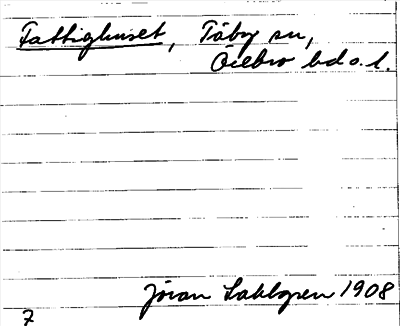 Fattighuset, Täby sn,
Örebro hd o. l.
Jöran Sahlgren 1908
7